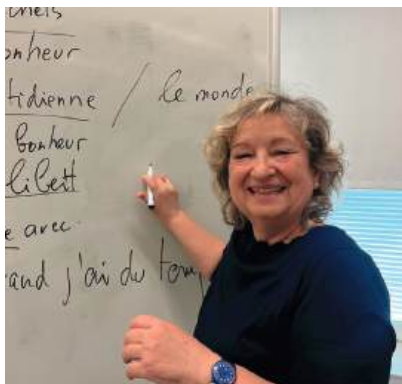 onheur
tidienne / le monde
bonheur
libert
e avec
and j'ai du temp